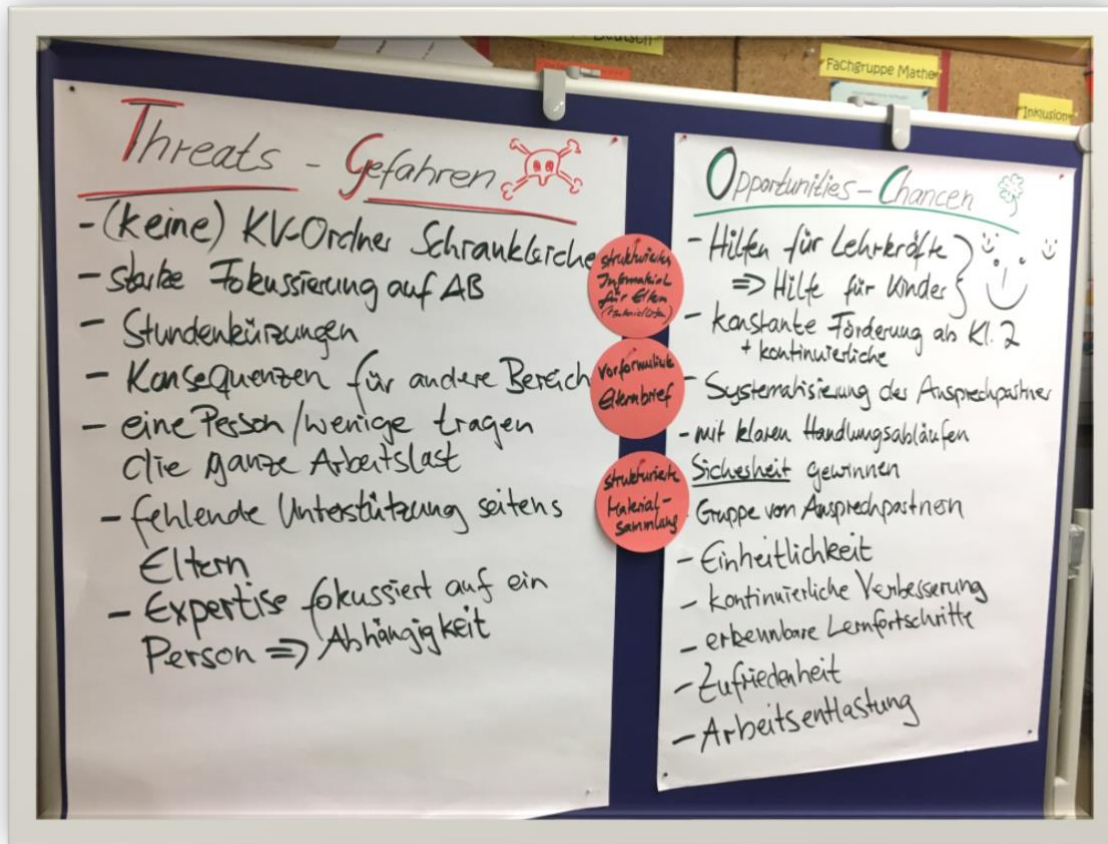 Deutsch
Fachgruppe Mathe
Inklusion
Threats - Gefahren
- (keine) KV-Ordner Schrankleiche
- starke Fokussierung auf AB
- Stundenkürzungen
- Konsequenzen für andere Bereich
- eine Person/wenige tragen
die ganze Arbeitslast
- fehlende Unterstützung seitens
Eltern
- Expertise fokussiert auf ein
Person => Abhängigkeit
strukturiertes
Informatial
für Eltern
vorformulierte
Elternbrief
strukturierte
Material-
sammlung
Opportunities - Chancen
- Hilfen für Lehrkräfte
=> Hilfe für Kinder
- konstante Förderung ab Kl. 2
+ kontinuierliche
- Systematisierung der Ansprechpartner
- mit klaren Handlungsabläufen
Sicherheit gewinnen
- Gruppe von Ansprechpartnern
- Einheitlichkeit
- kontinuierliche Verbesserung
- erkennbare Lernfortschritte
- Zufriedenheit
- Arbeitsentlastung